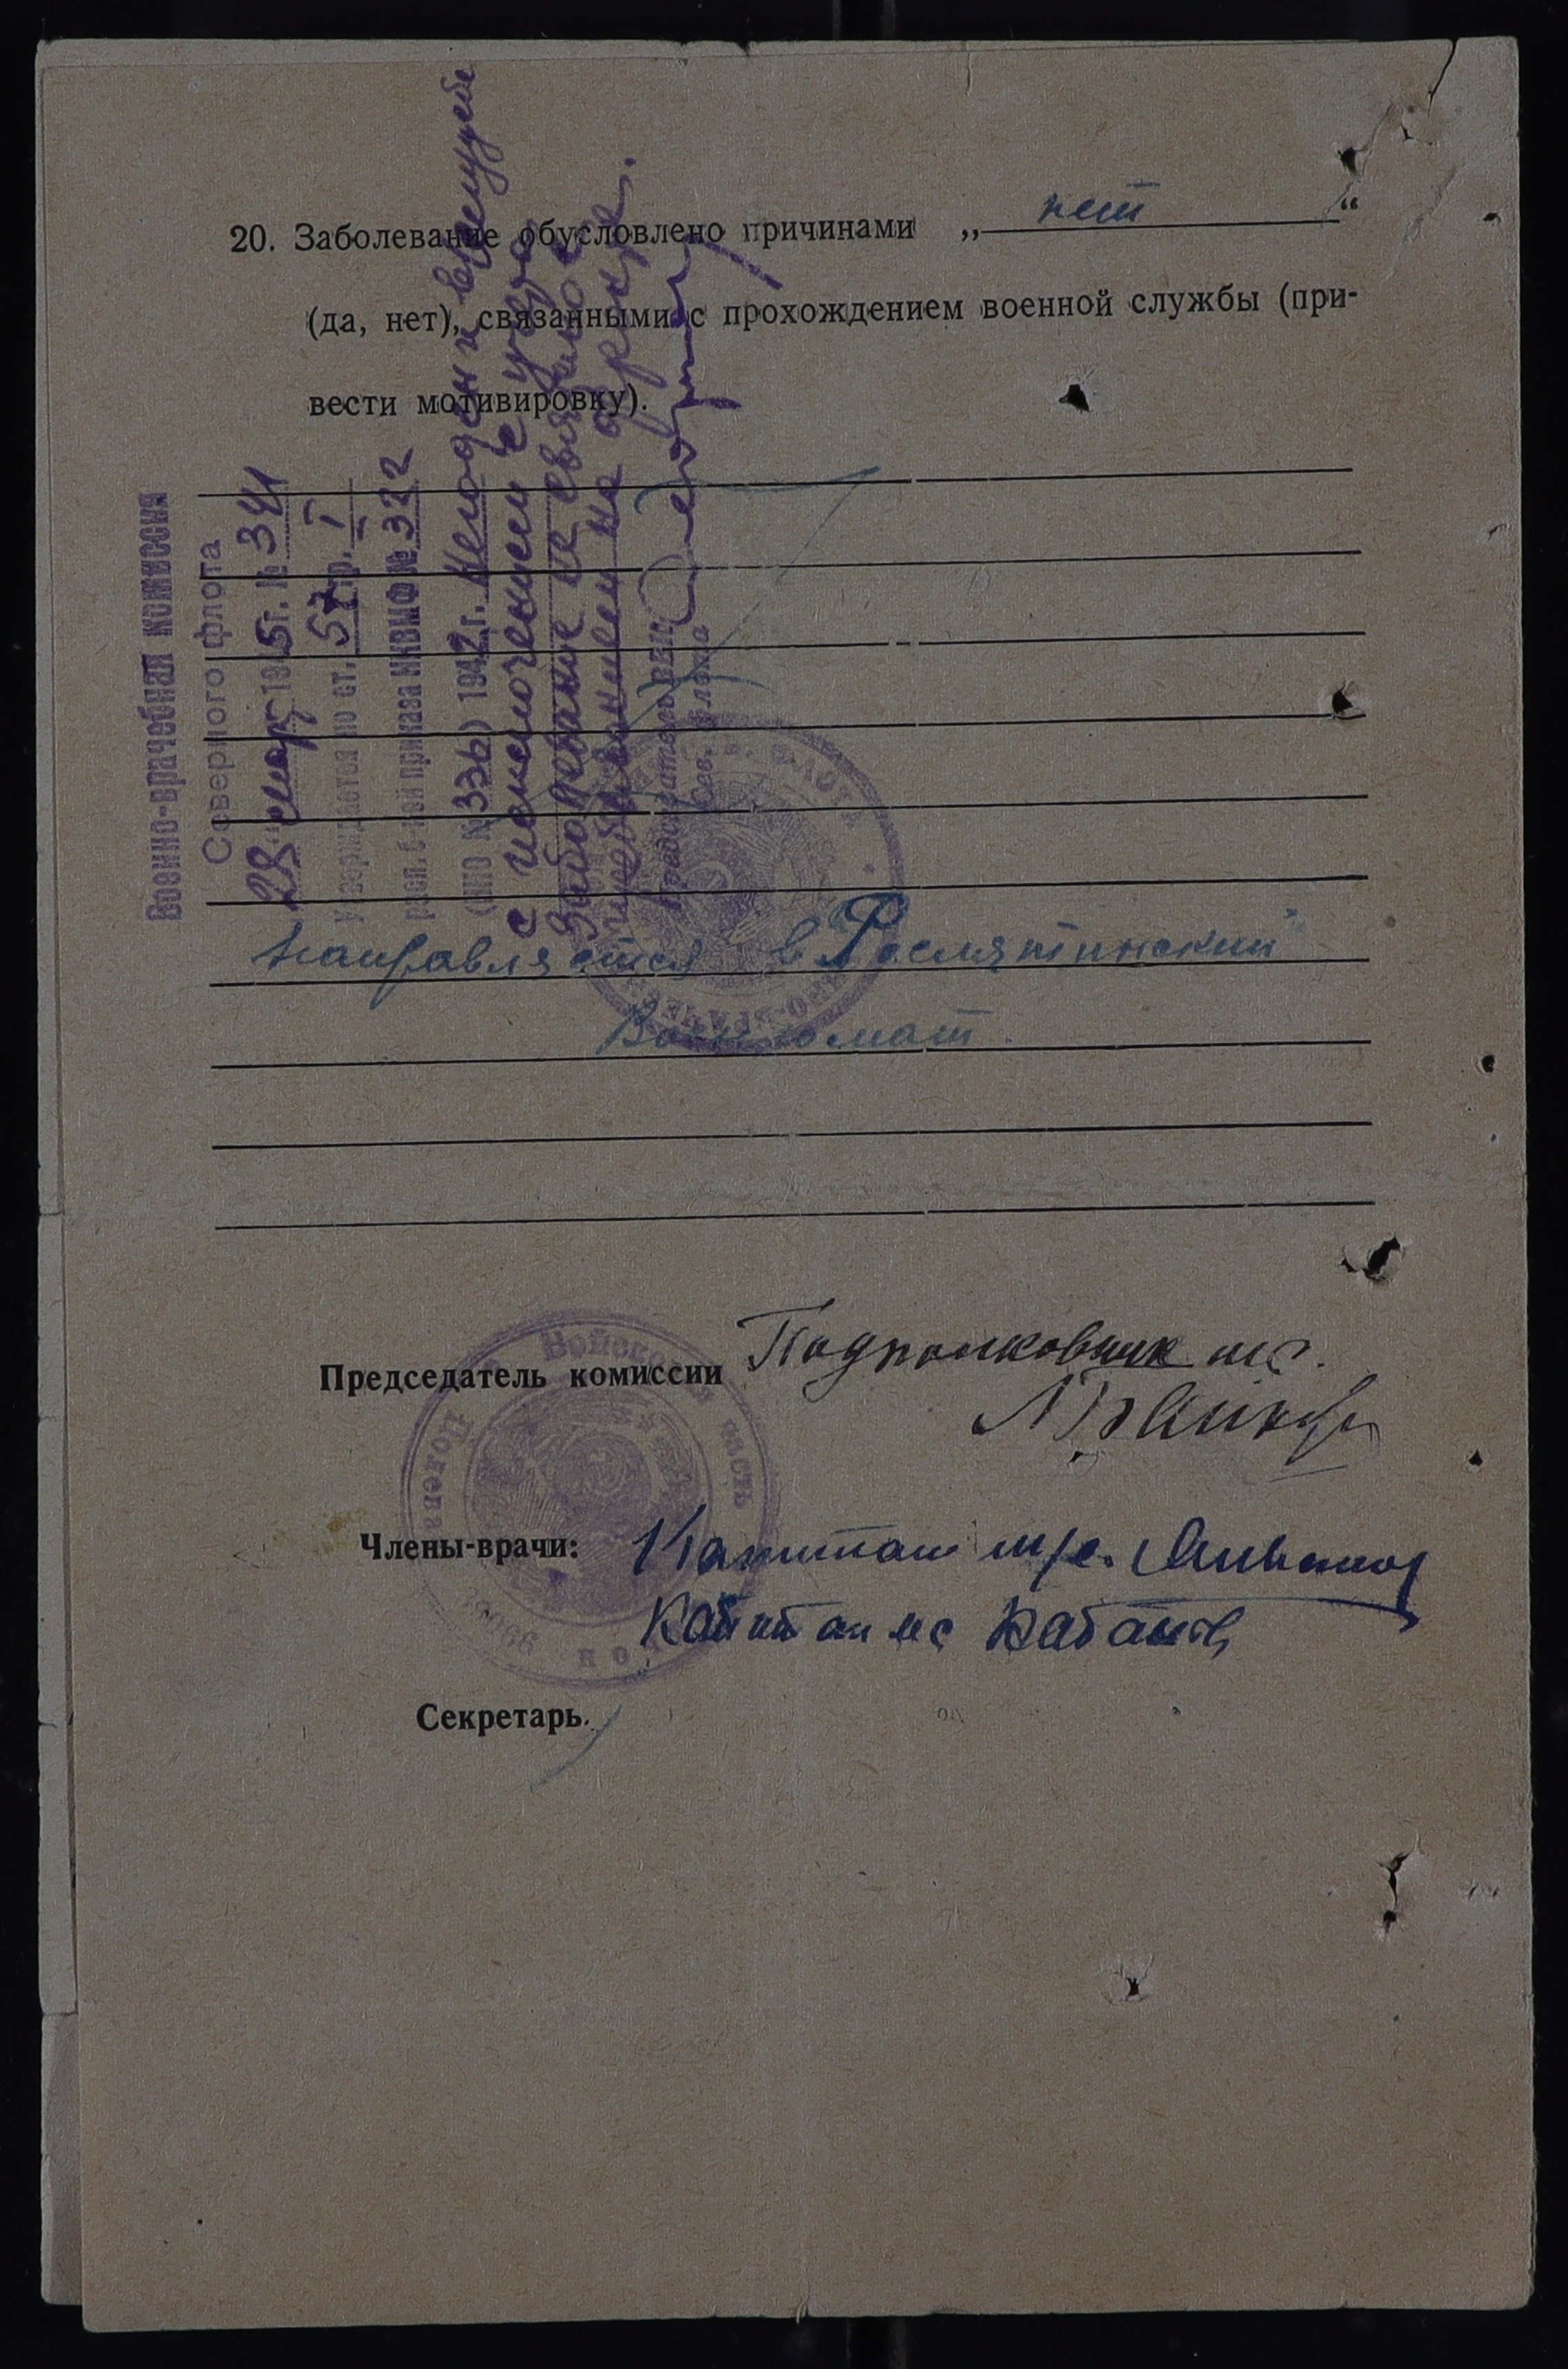 20. Заболевание обусловлено причинами „ нет “
(да, нет), связанными с прохождением военной службы (при-
вести мотивировку).
Военно-врачебная комиссия
Северного флота
28 март 1945г. № 341
Утверждается по ст. 57 гр. I
расп. б-ней приказа НКВМФ № 322
(НКО № 336) 1942г. Негоден к в/службе
с исключением с учёта
Заболевание не связано с
пребыванием на фронте.
Председатель ВВК
Сев. флота
Направляется в Рослятинский
Военкомат.
Председатель комиссии Подполковник мс.
Члены-врачи: Капитан м/с.
Капитан мс Кабанов
Секретарь.
Полевая Войсковая часть